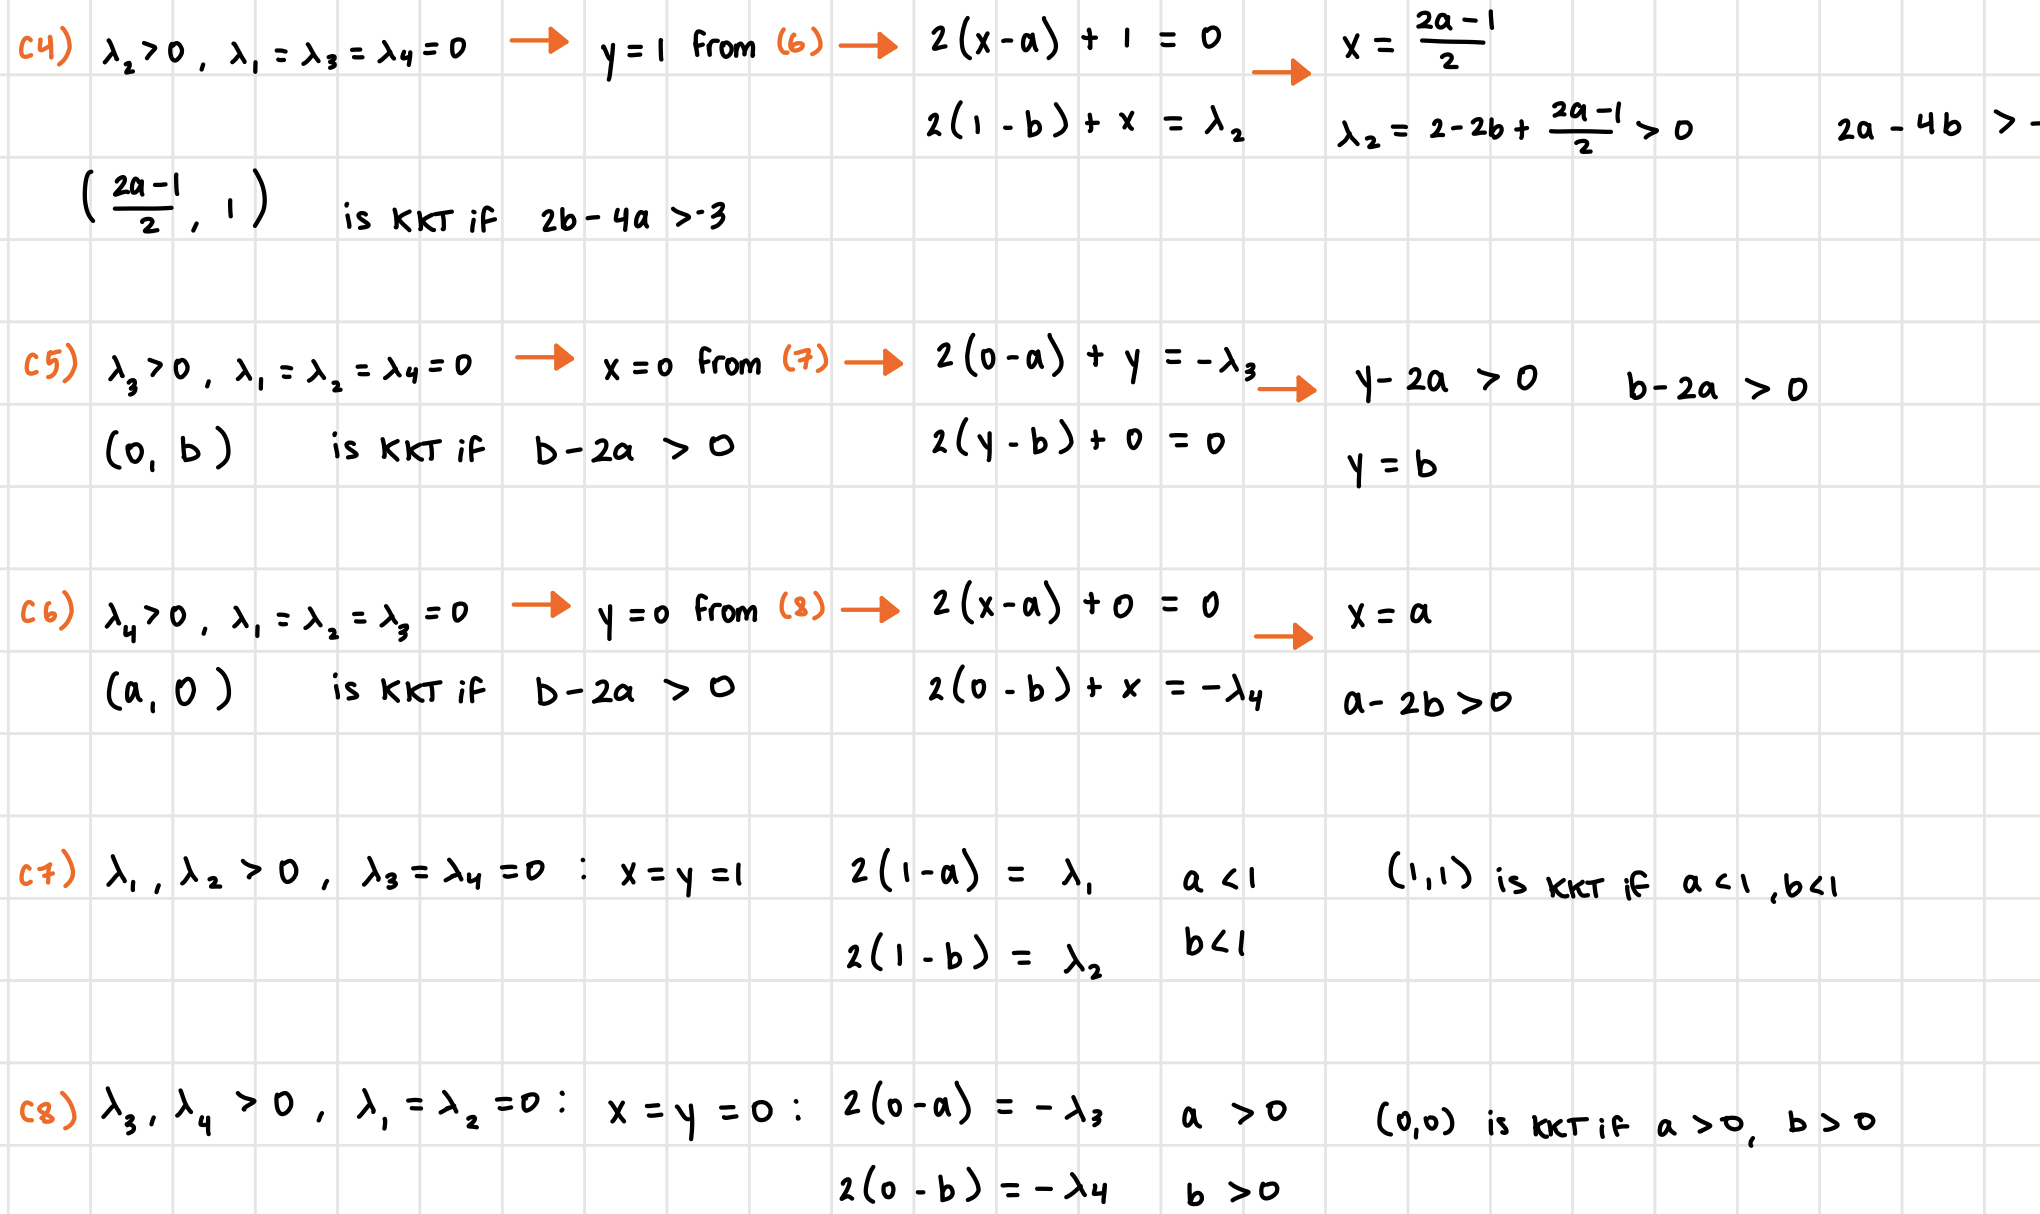 c4) λ₂ > 0, λ₁ = λ₃ = λ₄ = 0 → y = 1 from (6) → 2(x-a) + 1 = 0 → x = (2a-1)/2
2(1-b) + x = λ₂ λ₂ = 2-2b + (2a-1)/2 > 0 2a - 4b > -
((2a-1)/2, 1) is KKT if 2b - 4a > -3
c5) λ₃ > 0, λ₁ = λ₂ = λ₄ = 0 → x = 0 from (7) → 2(0-a) + y = -λ₃ → y - 2a > 0 b - 2a > 0
(0, b) is KKT if b - 2a > 0 2(y-b) + 0 = 0 y = b
c6) λ₄ > 0, λ₁ = λ₂ = λ₃ = 0 → y = 0 from (8) → 2(x-a) + 0 = 0 → x = a
(a, 0) is KKT if b - 2a > 0 2(0-b) + x = -λ₄ a - 2b > 0
c7) λ₁, λ₂ > 0, λ₃ = λ₄ = 0 : x = y = 1 2(1-a) = λ₁ a < 1 (1,1) is KKT if a < 1, b < 1
2(1-b) = λ₂ b < 1
c8) λ₃, λ₄ > 0, λ₁ = λ₂ = 0 : x = y = 0 : 2(0-a) = -λ₃ a > 0 (0,0) is KKT if a > 0, b > 0
2(0-b) = -λ₄ b > 0